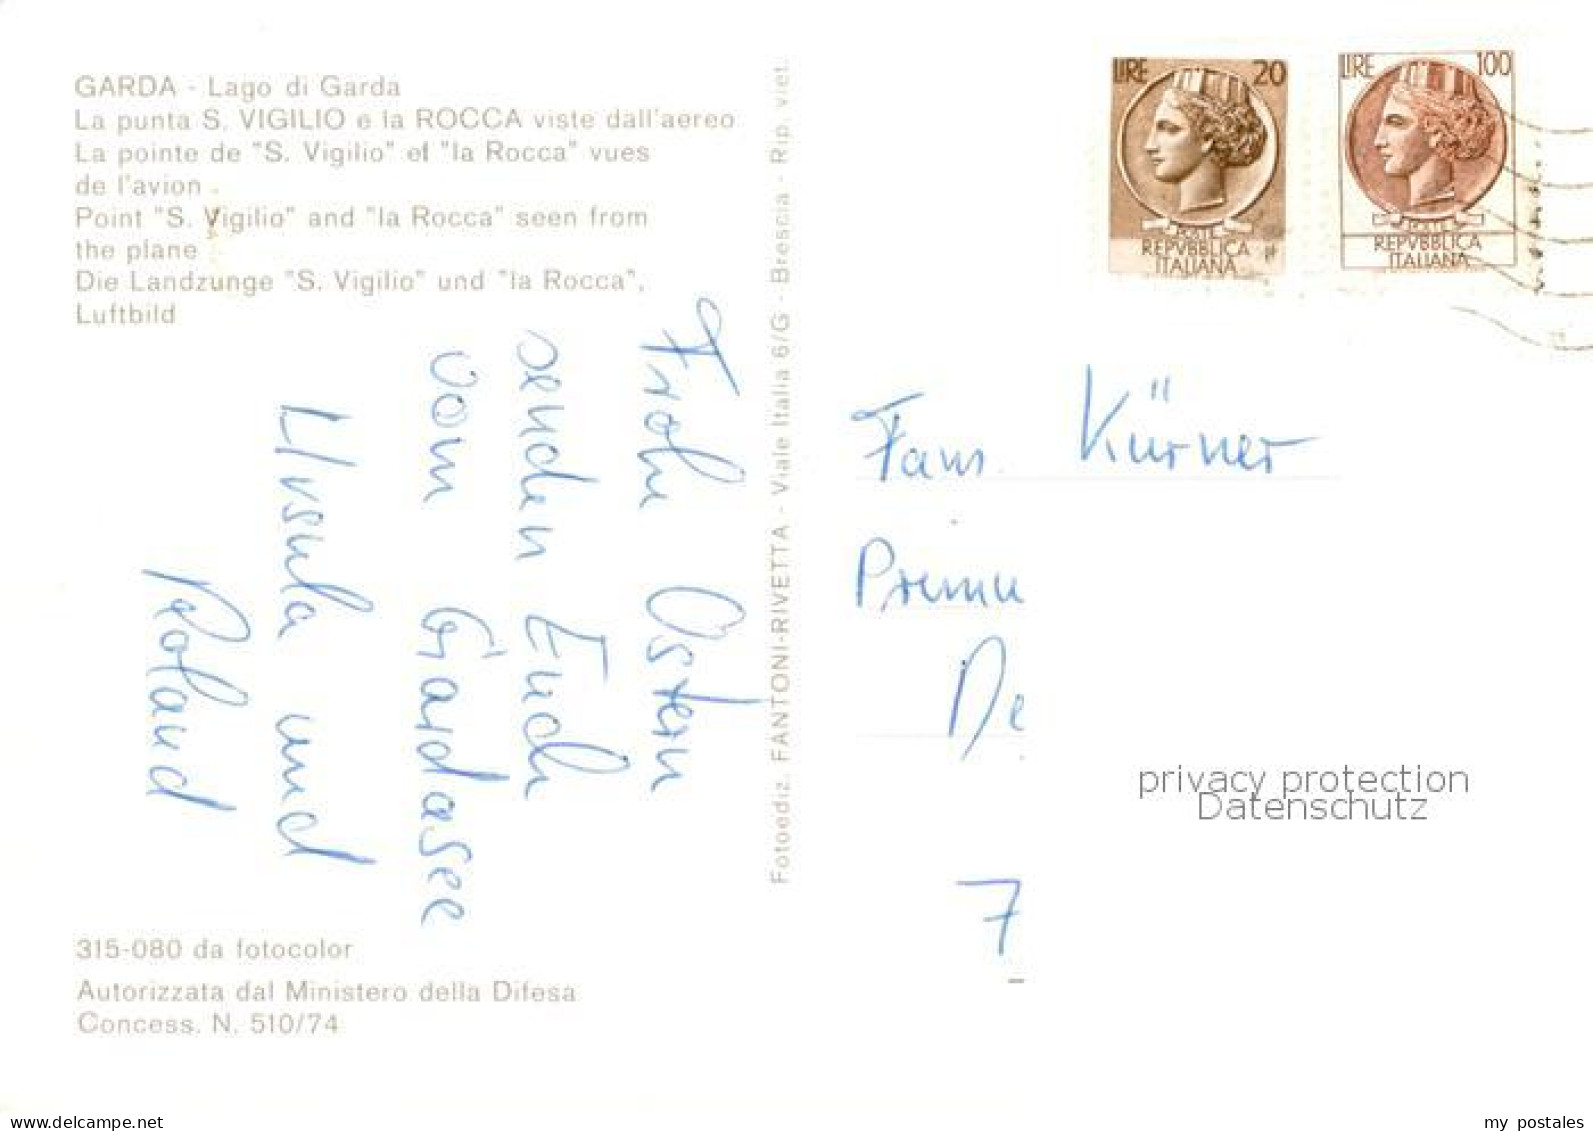 GARDA - Lago di Garda
La punta S. VIGILIO e la ROCCA viste dall'aereo
La pointe de "S. Vigilio" et "la Rocca" vues
de l'avion
Point "S. Vigilio" and "la Rocca" seen from
the plane
Die Landzunge "S. Vigilio" und "la Rocca",
Luftbild
Frohe Ostern
senden Euch
vom Gardasee
Ursula und
Roland
315-080 da fotocolor
Autorizzata dal Ministero della Difesa
Concess. N. 510/74
Fotoediz. FANTONI-RIVETTA - Viale Italia 6/G - Brescia - Rip. viet.
LIRE 20
POSTE
REPVBBLICA
ITALIANA
LIRE 100
POSTE
REPVBBLICA
ITALIANA
Fam. Kürner
7
privacy protection
Datenschutz
www.delcampe.net
my_postales